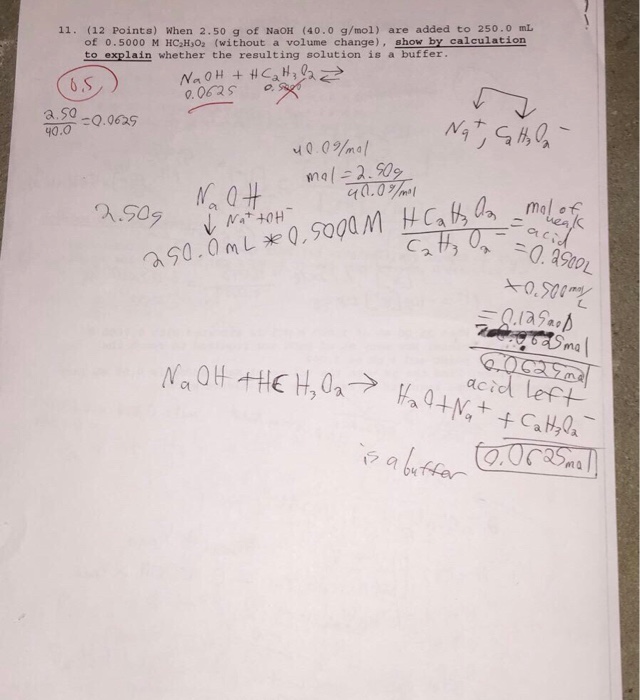 11. (12 Points) When 2.50 g of NaOH (40.0 g/mol) are added to 250.0 mL
of 0.5000 M HC₂H₃O₂ (without a volume change), show by calculation
to explain whether the resulting solution is a buffer.
NaOH + HC₂H₃O₂ ⇌
0.0625
2.50/40.0 = 0.0625
Na⁺, C₂H₃O₂⁻
40.0g/mol
mol = 2.50g/40.0g/mol
2.50g NaOH
↓ Na⁺ + OH⁻
250.0mL * 0.5000M
HC₂H₃O₂/C₂H₃O₂⁻ = mol of weak acid
= 0.2500L
× 0.500 mol/L
= 0.125mol
0.0625mol
0.0625mol
acid left
NaOH + HC H₃O₂ → H₂O + Na⁺ + C₂H₃O₂⁻
is a buffer 0.0625mol